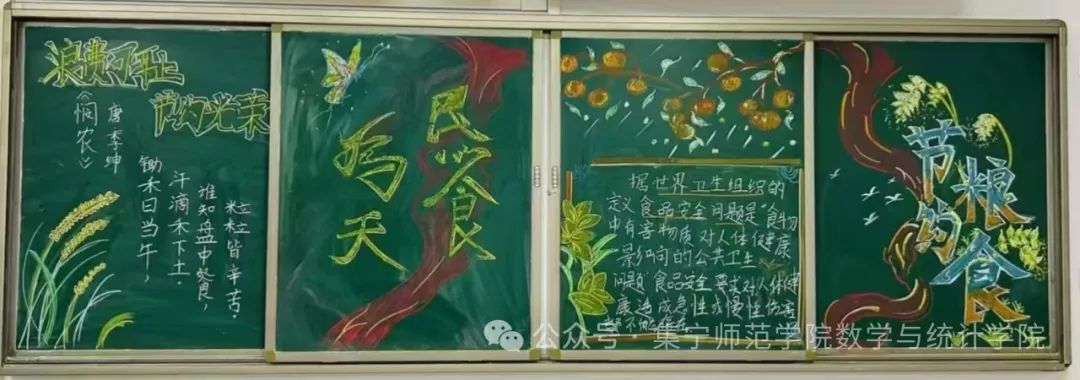 浪费可耻
节约光荣
《悯农》
唐 李绅
锄禾日当午，
汗滴禾下土。
谁知盘中餐，
粒粒皆辛苦。
民以食
为天
据世界卫生组织的
定义食品安全问题是“食物
中有害物质对人体健康
影响的公共卫生
问题”食品安全要求对人体健
康造成急性或慢性伤害
节约
粮食
公众号·集宁师范学院数学与统计学院